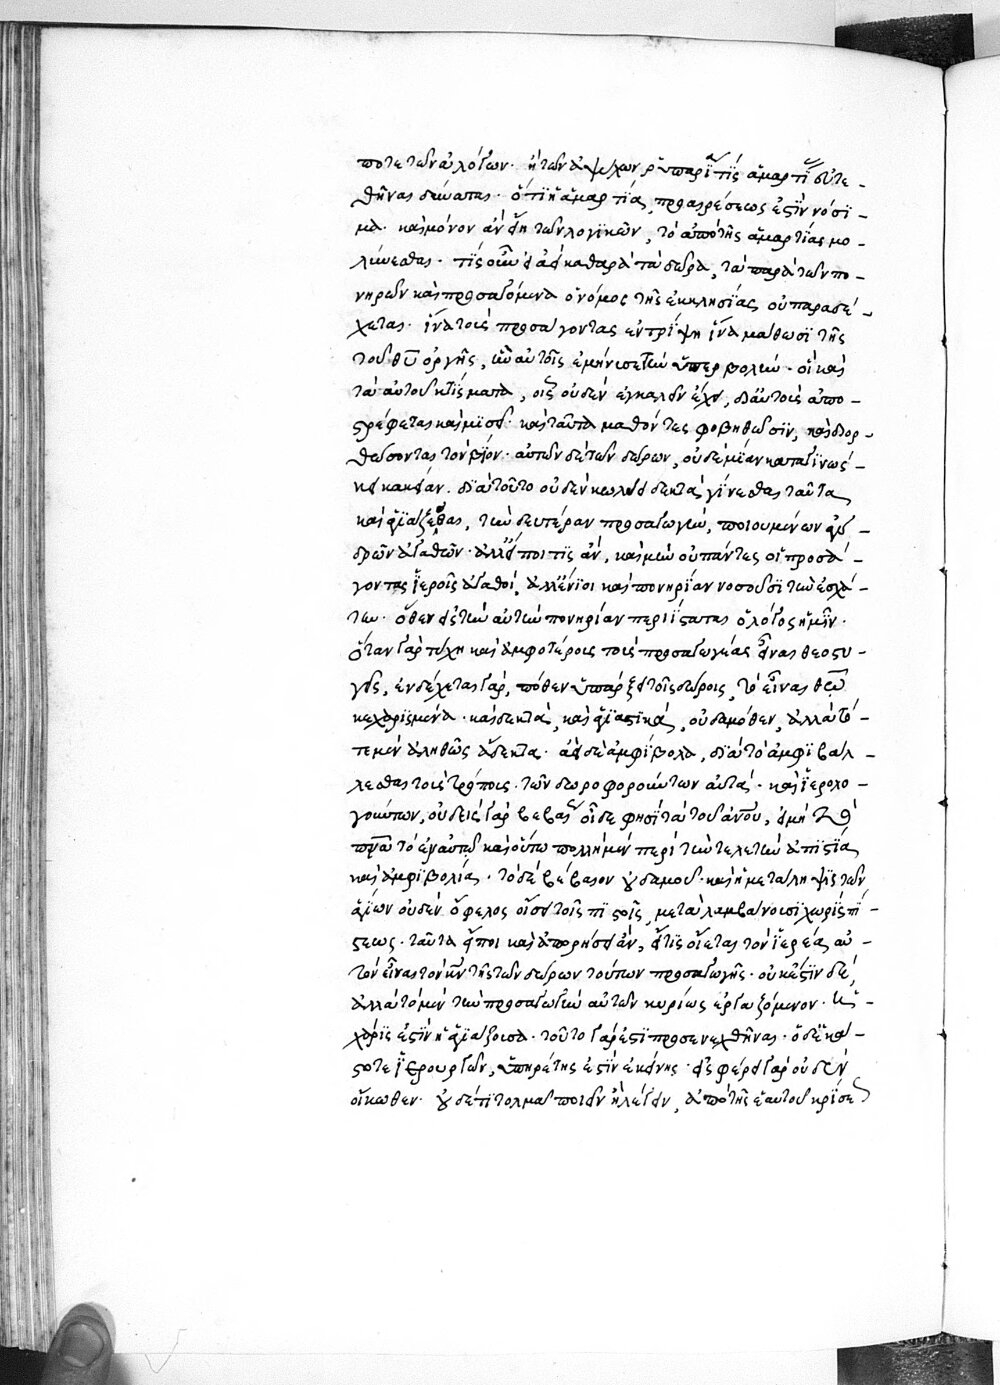 ποτε τῶν ἀλόγων. ἢ τῶν ἀψύχων ῥύπαρί τις ἁμαρτί συτε-
θῆναι δύναται. ὅτι ἡ ἁμαρτία, προαιρέσεως ἐστὶν νόση-
μα. καὶ μόνον ἂν εἴη τῶν λογικῶν, τὸ ἀπὸ τῆς ἁμαρτίας μο-
λύνεσθαι. τίς οὖν εἰ ἀεὶ καθαρὰ τὰ δῶρα, τὰ παρὰ τῶν πο-
νηρῶν καὶ προσαγόμενα ὁ νόμος τῆς ἐκκλησίας οὐ παραδέ-
χεται. ἵνα τοὺς προσάγοντας ἐντρέψῃ ἵνα μάθωσι τῆς
τοῦ θῦ ὀργῆς, ἣν αὐτοῖς ἐμήνισε τὴν ὑπερβολήν. οἳ καὶ
τὰ αὐτοῦ κτίσματα, οἷς οὐδὲν ἔγκαλεῖν ἔχει, δι' αὐτοὺς ἀπο-
στρέφεται καὶ μισεῖ. καὶ ταῦτα μαθόντες φοβηθῶσιν, καὶ διορ-
θώσονται τὸν βίον. αὐτῶν δὲ τῶν δώρων, οὐδεμίαν καταγινώσ-
κει κακίαν. διὰ τοῦτο οὐδὲν κωλύει δεκτὰ γίνεσθαι ταῦτα
καὶ ἁγιάζεσθαι, τὴν δευτέραν προσαγωγὴν, ποιουμένων ἀν-
δρῶν ἀγαθῶν. ἀλλ' εἴποι τις ἂν, καὶ μὴν οὐ πάντες οἱ προσά-
γοντες ἱεροῖς ἀγαθοί, ἀλλ' ἔνιοι καὶ πονηρίαν νοσοῦσι τὴν ἐσχά-
την. ὅθεν εἰς τὴν αὐτὴν πονηρίαν περιίσταται ὁ λόγος ἡμῖν.
ὅταν γὰρ τύχῃ καὶ ἀμφοτέροις τοῖς προσαγωγέας εἶναι θεοστυ-
γεῖς, ἐνδέχεται γὰρ, πόθεν ὑπάρξει τοῖς δώροις, τὸ εἶναι θεῶ
κεχαρισμένα. καὶ δεκτὰ, καὶ ἁγιαστικά, οὐδαμόθεν, ἀλλὰ τό-
τε μὲν ἀληθῶς ἄδεκτα. ἀεὶ δὲ ἀμφίβολα, διὰ τὸ ἀμφιβάλ-
λεσθαι τοὺς τρόπους. τῶν δωροφορούντων αὐτά. καὶ ἱερολο-
γούντων, οὐδεὶς γὰρ βεβαίως οἶδε φησὶ τὰ τοῦ ἀνου, εἰ μὴ τὸ
πνᾶ τὸ ἐν αὐτῷ καὶ οὕτω πολλὴ μὲν περὶ τὴν τελετὴν ἀπιστία
καὶ ἀμφιβολία. τὸ δὲ βέβαιον οὐδαμοῦ. καὶ ἡ μετάληψις τῶν
ἁγίων οὐδὲν ὄφελος οἴσει τοῖς πιστοῖς, μεταλαμβάνουσι χωρὶς πί-
στεως. ταῦτα εἴποι καὶ ἀπορήσει ἂν, εἴ τις οἴεται τὸν ἱερέα αὐ-
τὸν εἶναι τὸν κύριον τῆς τῶν δώρων τούτων προσαγωγῆς. οὐκ ἔστιν δέ,
ἀλλὰ τὸ μὲν τὴν προσαγωγὴν αὐτῶν κυρίως ἐργαζόμενον. ἡ
χάρις ἐστὶν ἡ ἁγιάζουσα. τοῦτο γάρ ἐστι προσενεχθῆναι. ὁ δὲ κά-
στοτε ἱερουργῶν, ὑπηρέτης ἐστὶν ἐκείνης. εἰσφέρει γὰρ οὐδὲν
οἴκωθεν. οὐδέ τι τολμᾷ ποιεῖν ἢ λέγειν, ἀπὸ τῆς ἑαυτοῦ κρίσε